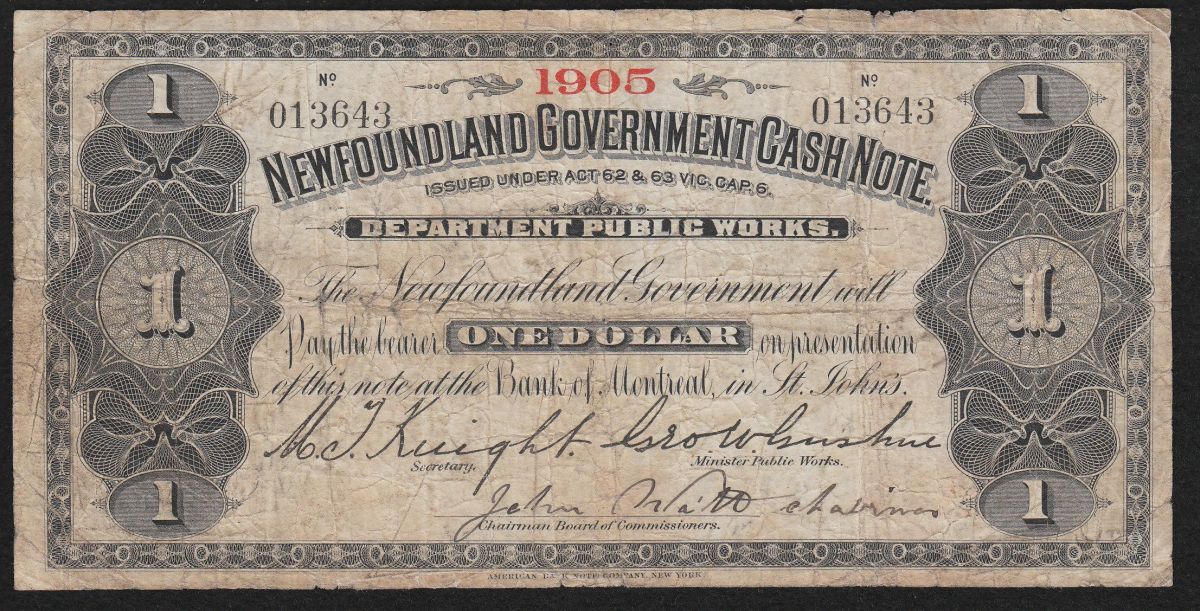 1905
1 Nº Nº 1
013643 013643
NEWFOUNDLAND GOVERNMENT CASH NOTE.
ISSUED UNDER ACT 62 & 63 VIC. CAP. 6.
DEPARTMENT PUBLIC WORKS.
The Newfoundland Government will
1 Pay the bearer ONE DOLLAR on presentation 1
of this note at the Bank of Montreal, in St. John's.
M. J. Knight. Geo W Gushue
Secretary. Minister Public Works.
1 John chairman 1
Chairman Board of Commissioners.
AMERICAN BANK NOTE COMPANY, NEW YORK.